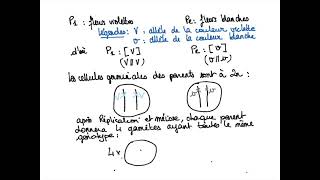 P1 : fleurs violettes P2 : fleurs blanches
Légendes: V : allèle de la couleur violette
v : allèle de la couleur blanche
d'où P1 : [V] P2 : [v]
(V//V) (v//v)
Les cellules germinales des parents sont à 2n :
V V v v
après Réplication et méiose, chaque parent
donnera 4 gamètes ayant toutes le même
génotype :
4x